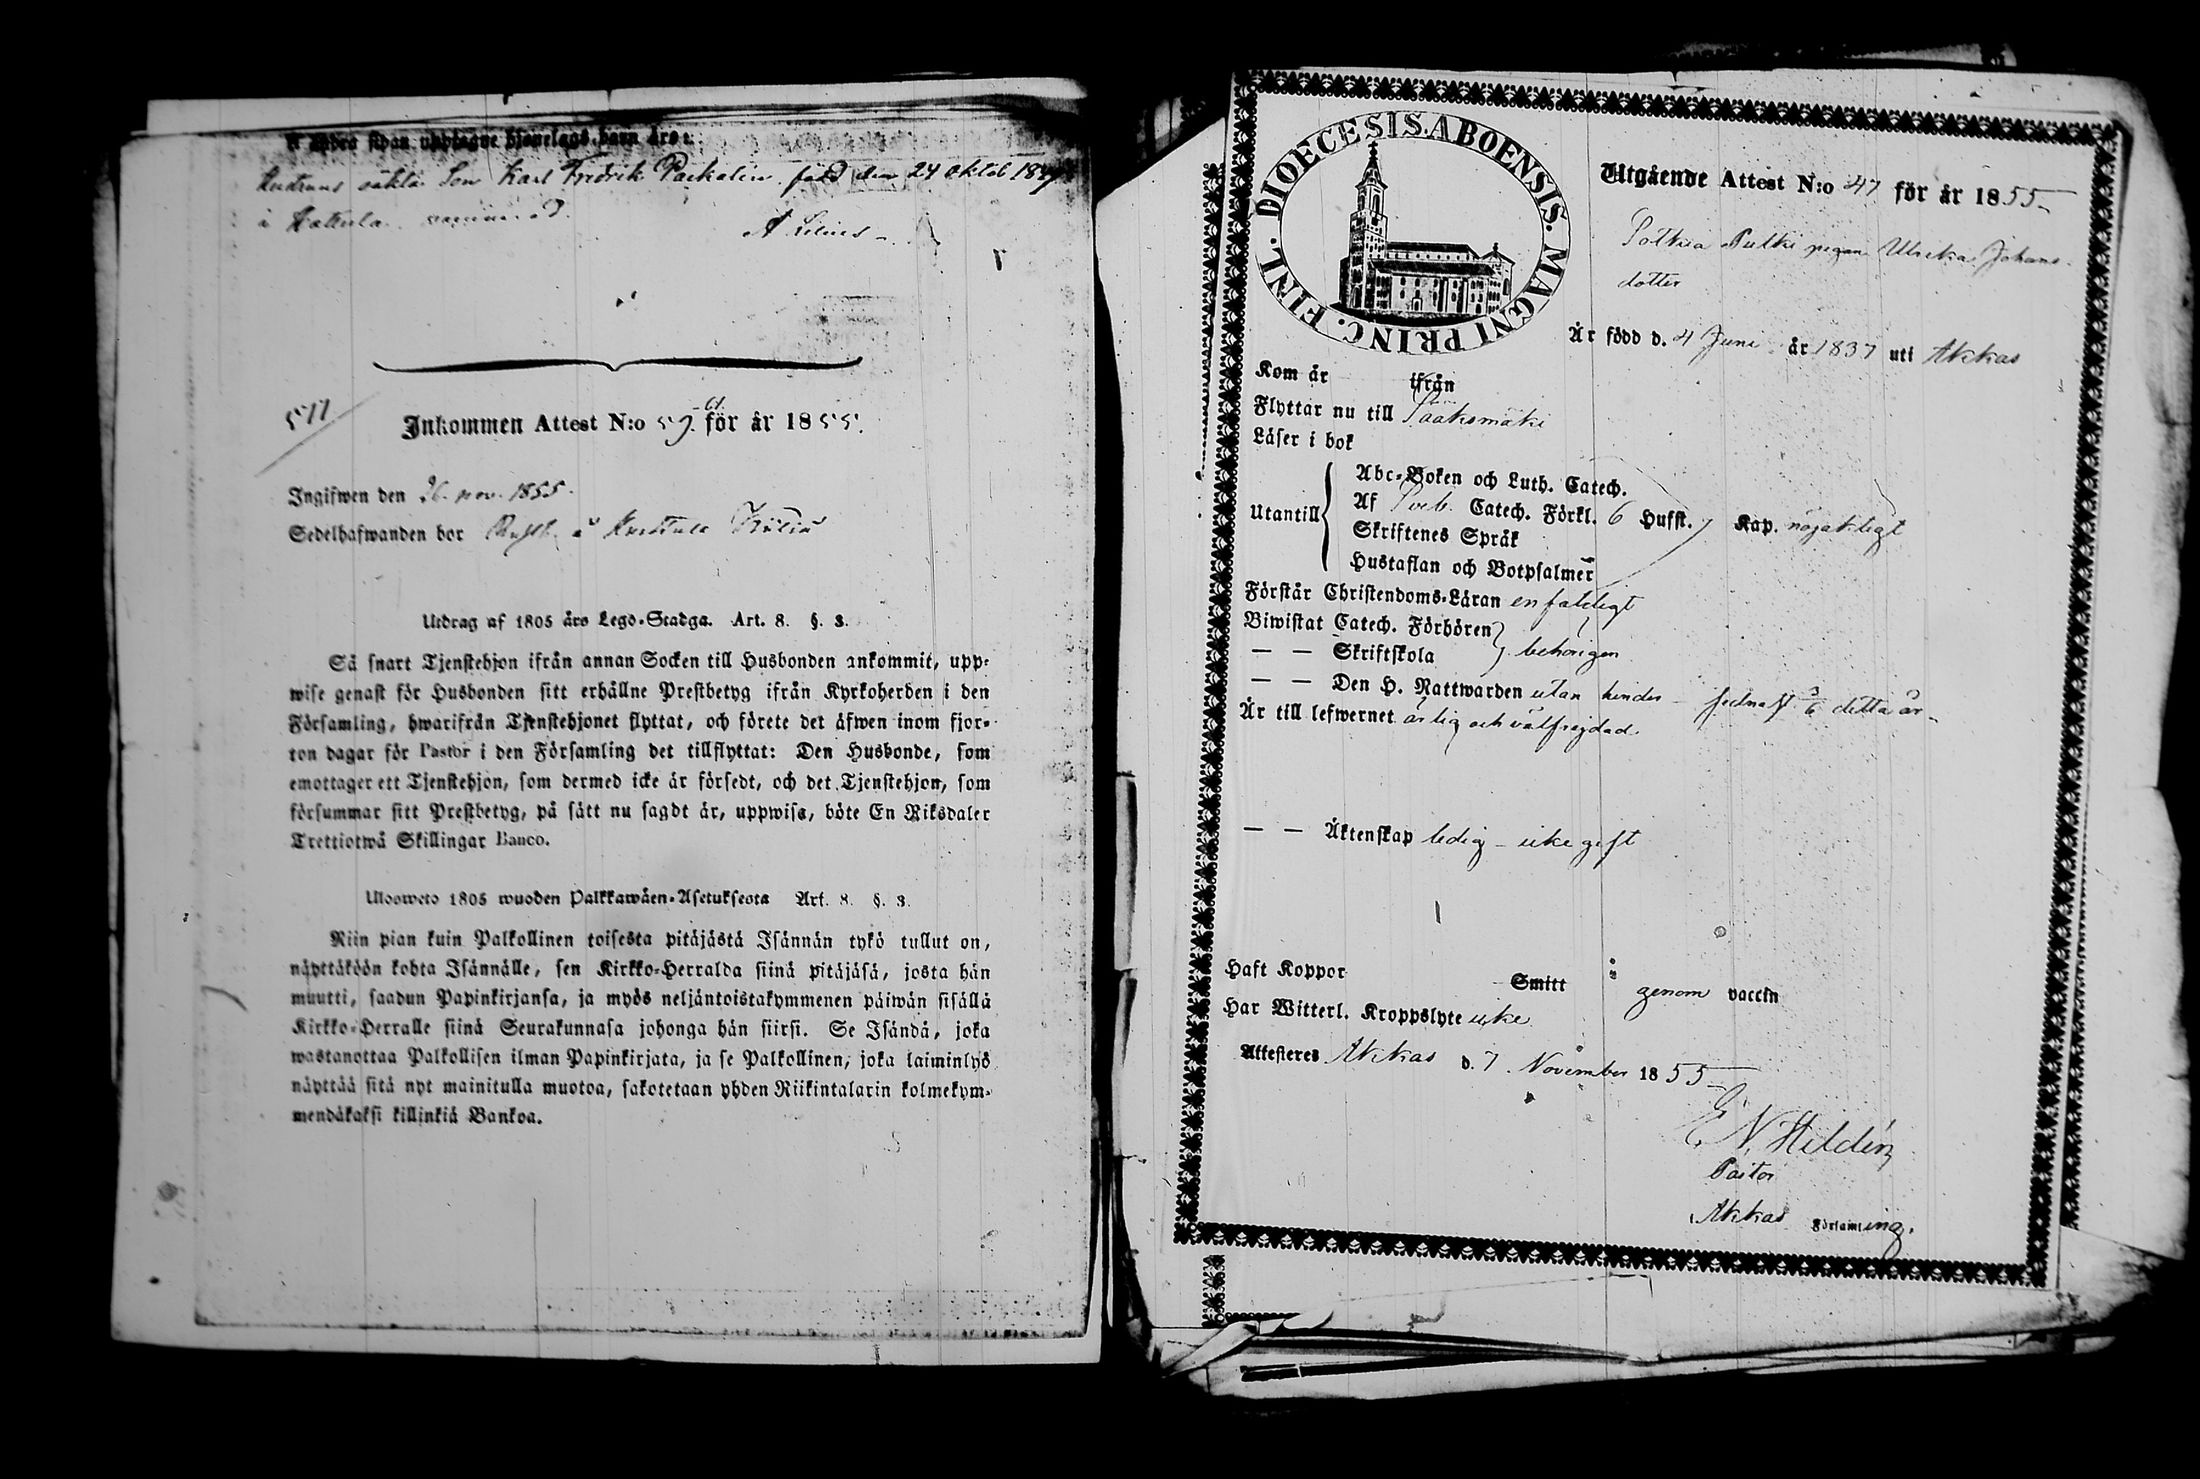 Hustruns oäkta Son Karl Fredrik född den 24 Oktob
i Hattula
A
511
Inkommen Attest N:o 59. för år 1855.
Ingifwen den 26. nov. 1855.
Sedelhafwanden bor
Utdrag af 1805 års Lego-Stadga. Art. 8. §. 3.
Så snart Tjenstehjon ifrån annan Socken till Husbonden ankommit, upp-
wise genast för Husbonden sitt erhållne Prestbetyg ifrån Kyrkoherden i den
Församling, hwarifrån Tjenstehjonet flyttat, och förete det äfwen inom fjor-
ton dagar för Pastor i den Församling det tillflyttat: Den Husbonde, som
emottager ett Tjenstehjon, som dermed icke är försedt, och det Tjenstehjon, som
försummar sitt Prestbetyg, på sätt nu sagdt är, uppwisa, böte En Riksdaler
Trettiotwå Skillingar Banco.
Ulosweto 1805 wuoden Palkkawäen-Asetuksesta Art. 8. §. 3.
Niin pian kuin Palkollinen toisesta pitäjästä Isännän tykö tullut on,
näyttäköön kohta Isännälle, sen Kirkko-Herralda siinä pitäjäsä, josta hän
muutti, saadun Papinkirjansa, ja myös neljäntoistakymmenen päiwän sisällä
Kirkko-Herralle siinä Seurakunnasa johonga hän siirsi. Se Isändä, joka
wastanottaa Palkollisen ilman Papinkirjata, ja se Palkollinen, joka laiminlyö
näyttää sitä nyt mainitulla muotoa, sakotetaan yhden Riikintalarin kolmekym-
mendäkaksi killinkiä Bankoa.
DIOECESIS. ABOENSIS. MAGNI PRINC. FINL.
Utgående Attest N:o 47 för år 1855
pigan Ulrika Johans
dotter
Är född d. 4 Juni år 1837 uti Akkas
Kom år ifrån
Flyttar nu till Sääksmäki
Läser i bok
Utantill
Abc-Boken och Luth. Catech.
Af Catech. Förkl. 6 Hufst. 7 Kap. nöjaktligt
Skriftenes Språk
Hustaflan och Botpsalmer
Förstår Christendoms-Läran enfaldigt
Biwistat Catech. Förhören
— — Skriftskola behörigen
— — Den H. Nattwarden utan hinder detta år
Är till lefwernet ärlig och välfrejdad.
— — Äktenskap ledig - icke gift
Haft Koppor Smitt genom vaccin
Har Witterl. Kroppslyte icke
Attesteres Akkas d. 7 November 1855
E. N. Hildén
Pastor
Akkas Församling.